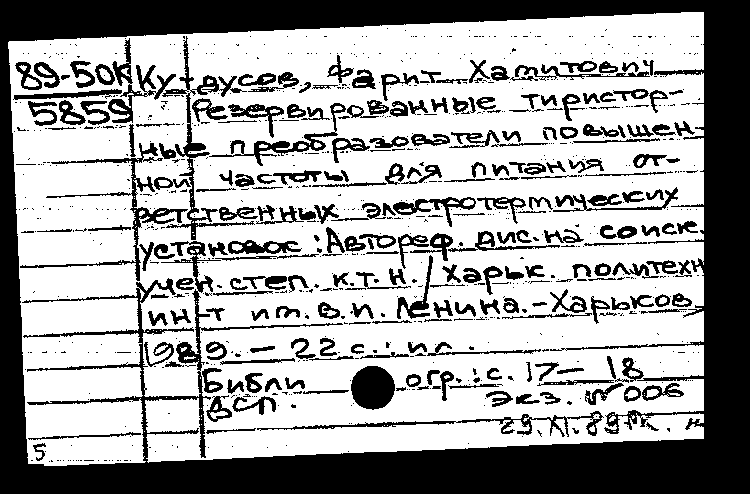 89-50К Кудусов, Фарит Хамитович
5859 Резервированные тиристор-
ные преобразователи повышен-
ной частоты для питания от-
ветственных электротермических
установок : Автореф. дис. на соиск.
учен. степ. к.т.н. / Харьк. политехн
ин-т им. В.И. Ленина. - Харьков,
1989. - 22 с. : ил.
Библиогр. : с. 17-18
ДСП. Экз. № 006
29.XI.89
5